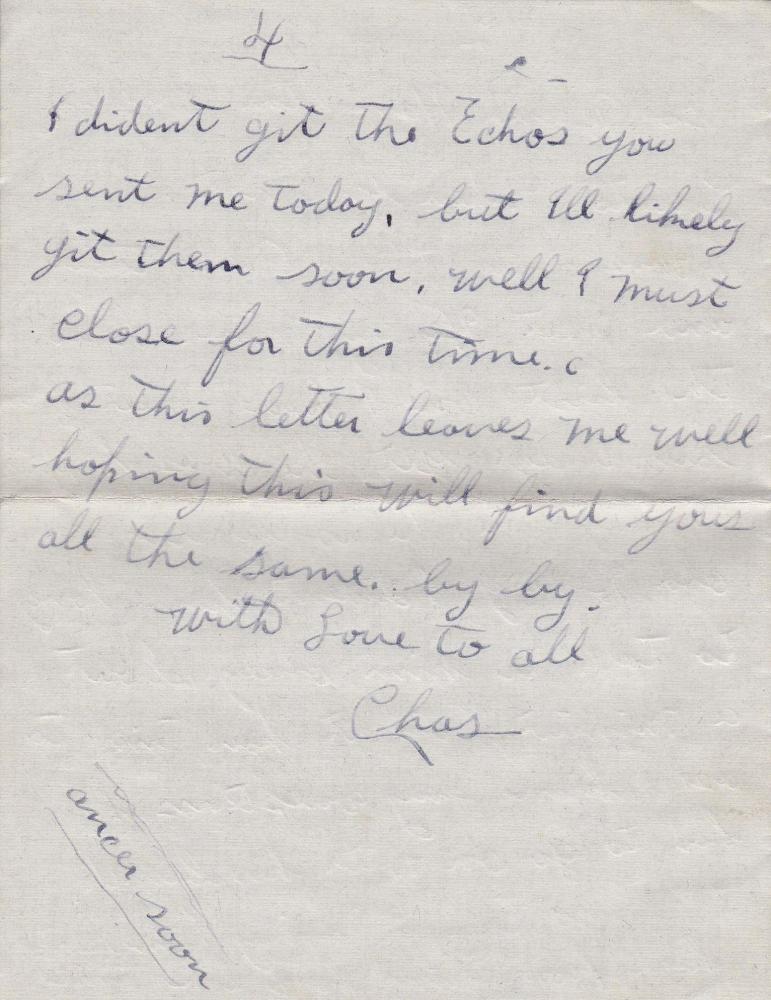 4
I dident git the Echos you
sent me today, but Ill likely
git them soon, well I must
close for this time.
as this letter leaves me well
hoping this will find yous
all the same. by by.
with Love to all
Chas
ancer soon